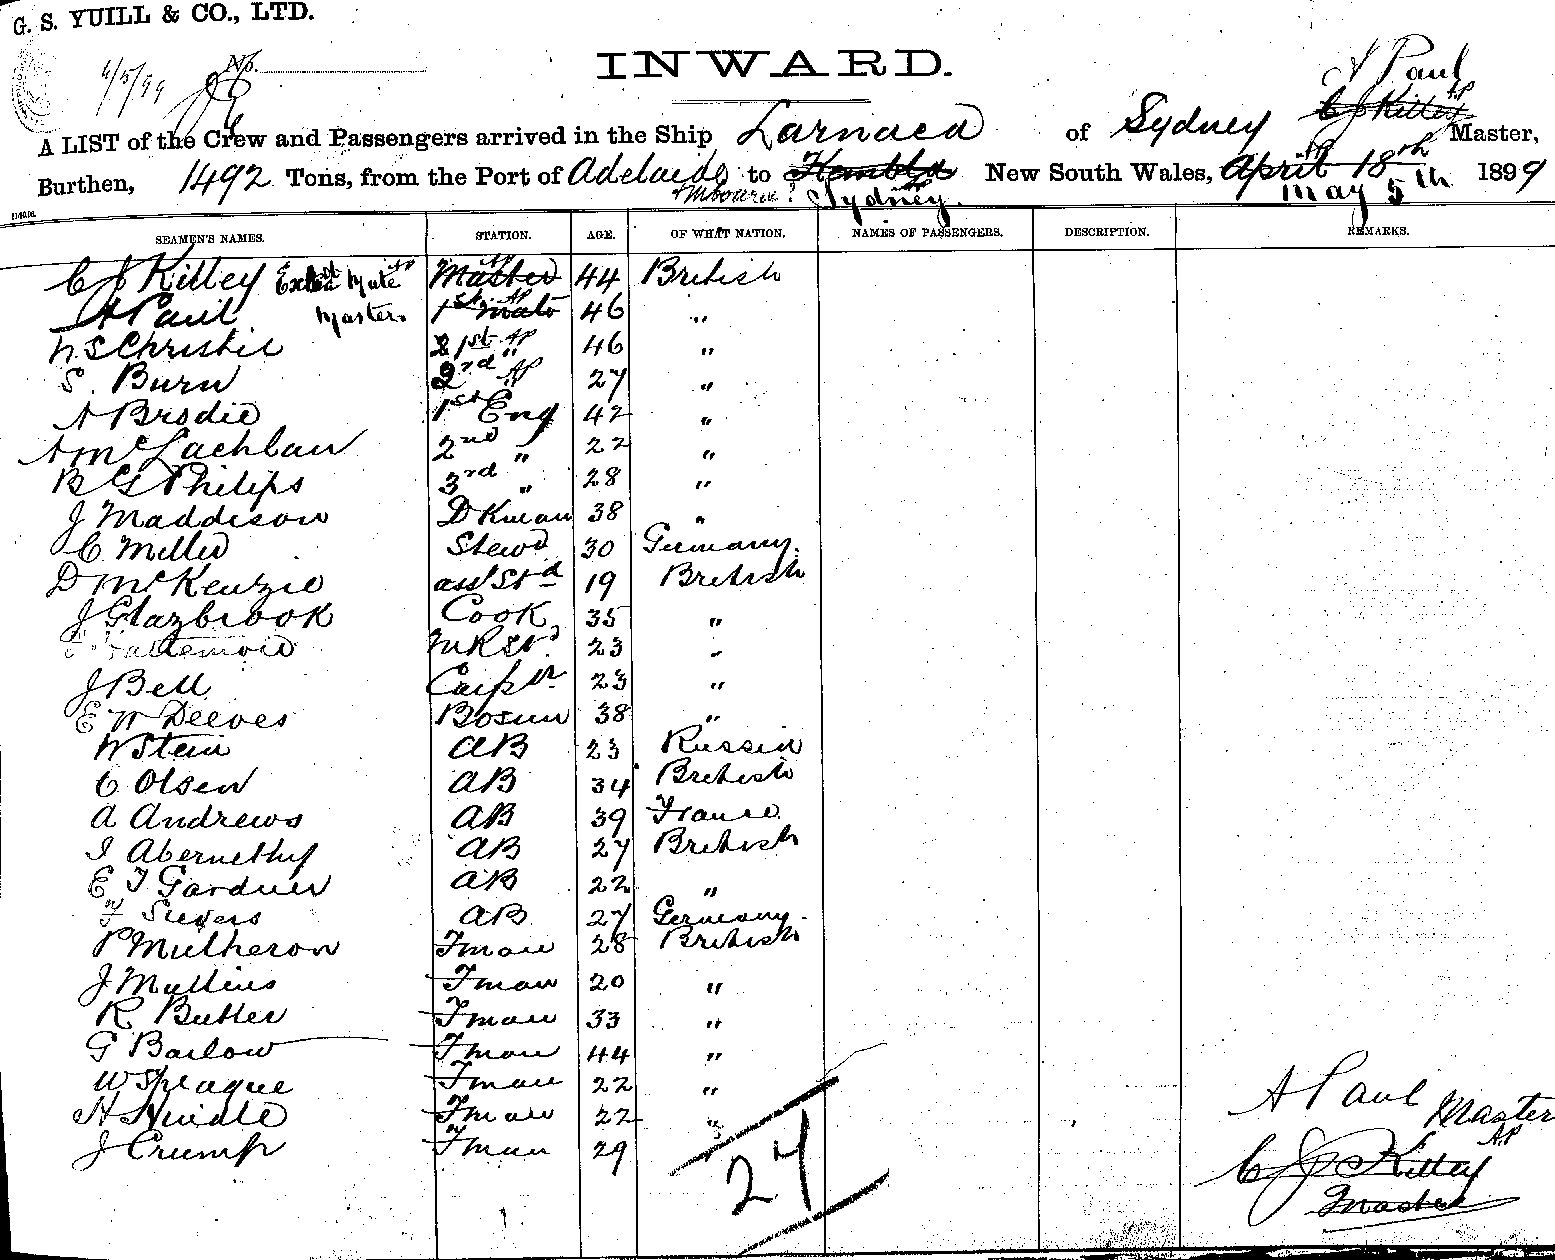 G. S. YUILL & CO., LTD.
4/5/99 No.
INWARD.
A Paul
A LIST of the Crew and Passengers arrived in the Ship Larnaca of Sydney C J Killey AP Master,
Burthen, 1492 Tons, from the Port of Adelaide to Kembla New South Wales, April 18th 1899
Sydney. AP May 5th
SEAMEN'S NAMES. STATION. AGE. OF WHAT NATION. NAMES OF PASSENGERS. DESCRIPTION. REMARKS.
C J Killey Extra 1st Mate AP Master AP 44 British
A Paul Master 1st Mate AP 46 "
N S Christie 2 1st AP " 46 "
S. Burn 3 2nd AP 27 "
A Brodie 1st Eng 42 "
A McLachlan 2nd " 22 "
B G Philips 3rd " 28 "
J Maddison Dkman 38 "
C Miller Stewd 30 Germany.
D McKenzie asst Std 19 British
J Glazbrook Cook 35 "
MRStd 23 "
J Bell Carptr 23 "
E W Deeves Bosun 38 "
W Stein AB 23 Russia
C Olsen AB 34 British
A Andrews AB 39 France
I Abernethy AB 27 British
E J Gardner AB 22 "
F Sievers AB 27 Germany.
P Mulheron Fman 28 British
J Mullins Fman 20 "
R Butler Fman 33 "
G Barlow Fman 44 "
W Sprague Fman 22 "
H Hindle Fman 22 "
J Crump Fman 29 "
27
A Paul Master
C J Killey AP
Master